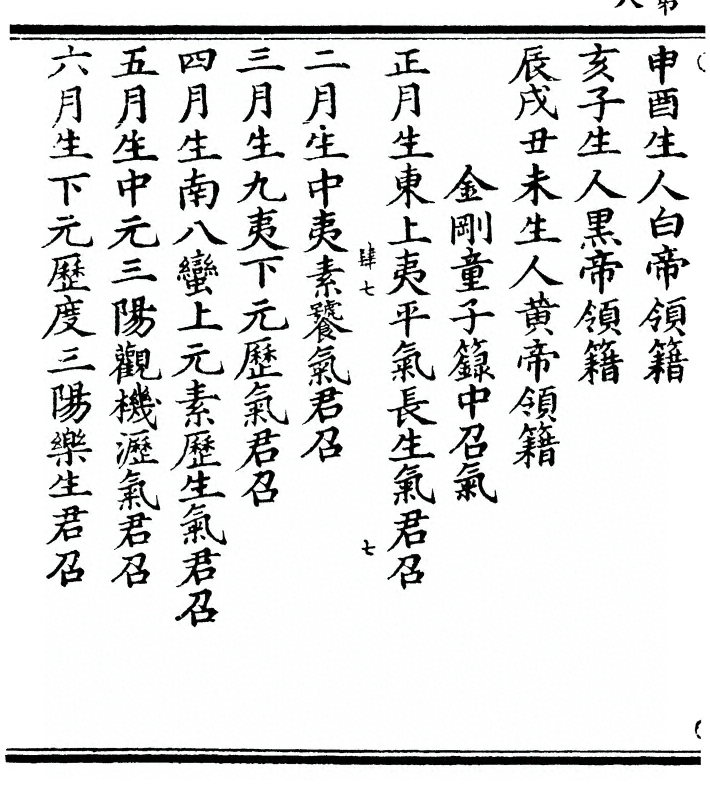 申酉生人白帝領籍
亥子生人黒帝領籍
辰戌丑未生人黄帝領籍
金剛童子籙中召氣
正月生東上夷平氣長生氣君召
肆七
七
二月生中夷素饕氣君召
三月生九夷下元歷氣君召
四月生南八蠻上元素歷生氣君召
五月生中元三陽觀機瀝氣君召
六月生下元歷度三陽樂生君召